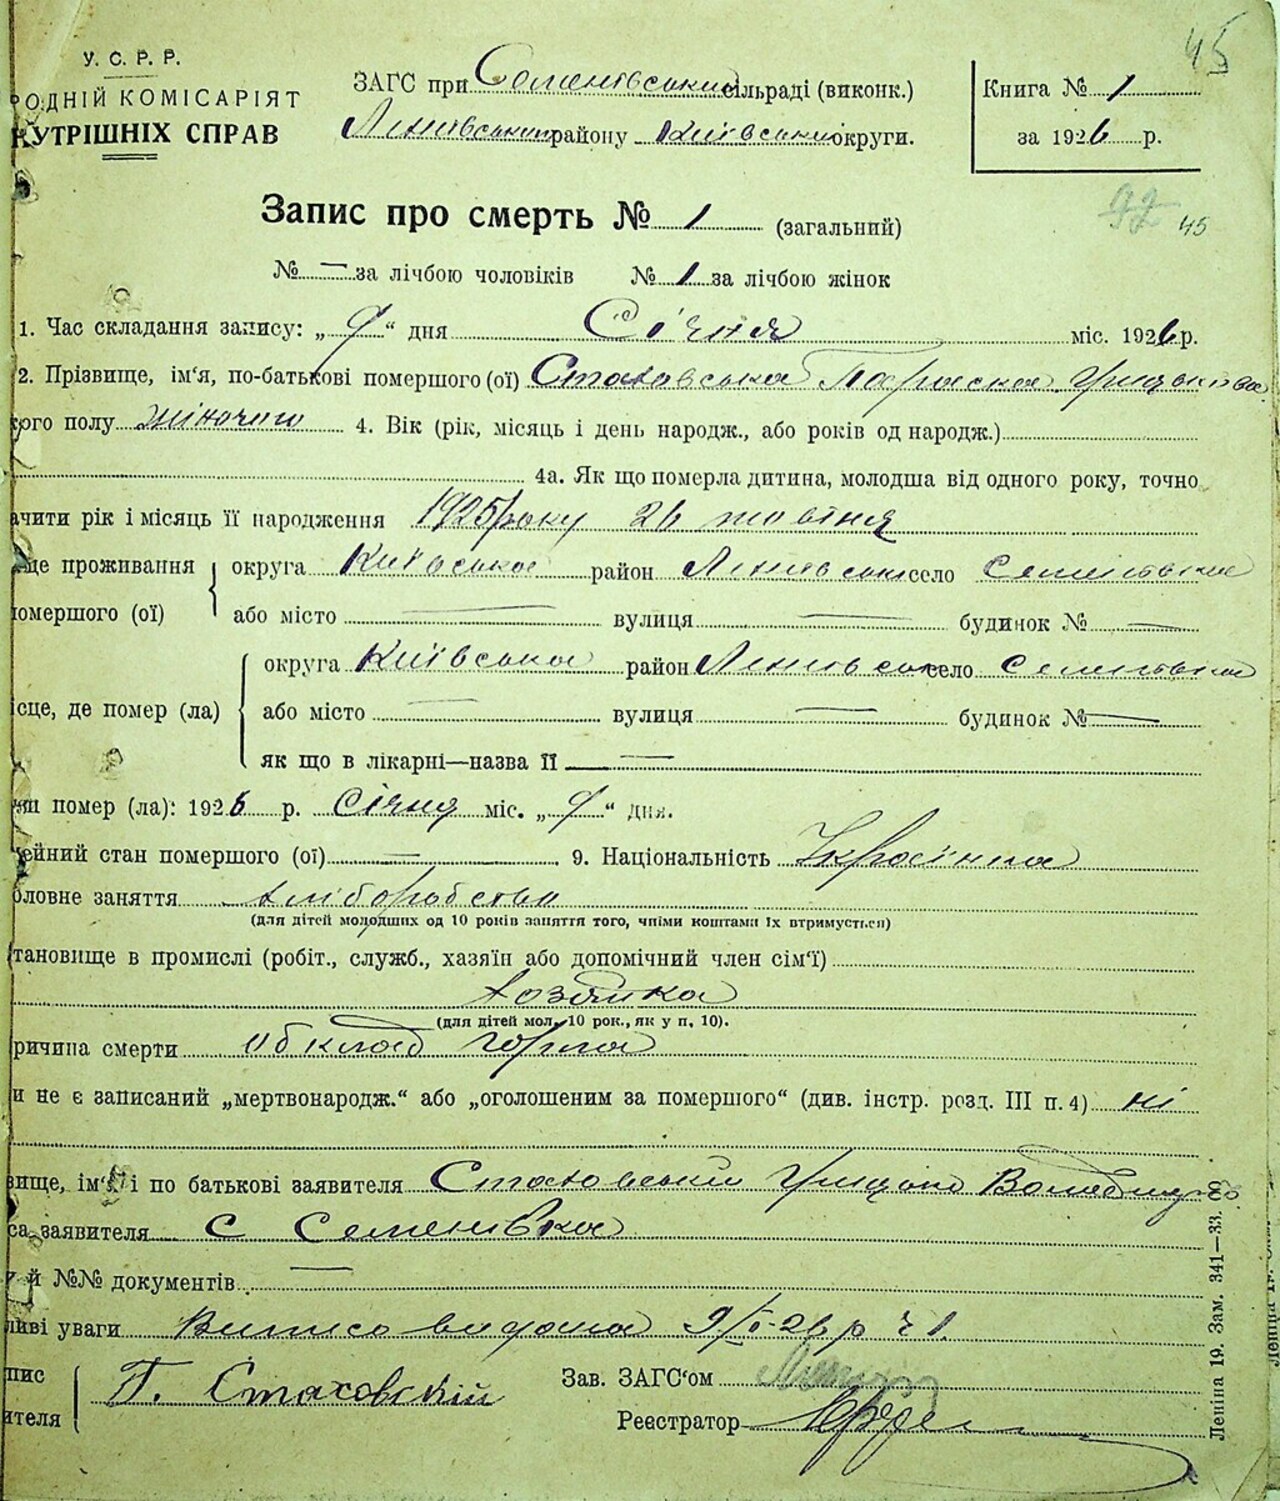 45
У. С. Р. Р.
ОДНІЙ КОМІСАРІЯТ
УТРІШНІХ СПРАВ
ЗАГС при Семенівський сільраді (виконк.)
району Київської округи.
Книга № 1
за 1926 р.
Запис про смерть № 1 (загальний)
45
№ — за лічбою чоловіків № 1 за лічбою жінок
1. Час складання запису: „9“ дня Січня міс. 1926 р.
2. Прізвище, ім'я, по-батькові помершого (ої) Стаховська Параска Грицькова
ого полу жіночого 4. Вік (рік, місяць і день народж., або років од народж.)
4а. Як що померла дитина, молодша від одного року, точно
ачити рік і місяць її народження 1925 року 26 жовтня
це проживання округа Київська район село
омершого (ої) або місто — вулиця — будинок № —
округа Київська район село
ісце, де помер (ла) або місто — вулиця — будинок № —
як що в лікарні—назва її —
ли помер (ла): 1926 р. Січня міс. „9“ дня.
ейний стан помершого (ої) — 9. Національність Українка
оловне заняття хліборобство
(для дітей молодших од 10 років заняття того, чиїми коштами їх втримується)
тановище в промислі (робіт., служб., хазяїн або допомічний член сім'ї)
хозяйка
(для дітей мол. 10 рок., як у п. 10).
ричина смерти обклад горла
и не є записаний „мертвонародж.“ або „оголошеним за помершого“ (див. інстр. розд. III п. 4) ні
вище, ім'я і по батькові заявителя Стаховський Грицько
са заявителя с Семенівка
й №№ документів —
ливі уваги Випись видана 9/I-26 р ч 1.
пис
ителя Г. Стаховскій
Зав. ЗАГС'ом
Реєстратор
Леніна 19. Зам. 341—33.